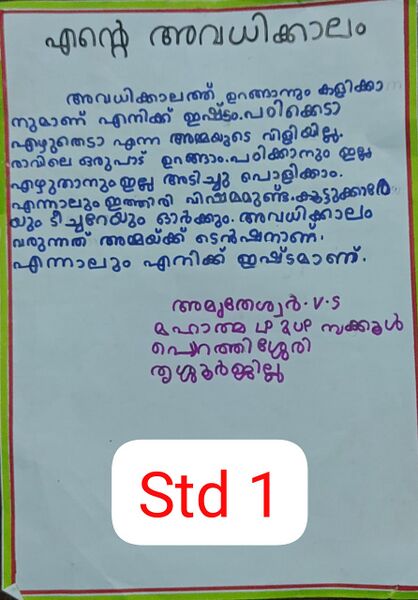 എന്റെ അവധിക്കാലം
അവധിക്കാലത്ത് ഉറങ്ങാനും കളിക്കാ
നുമാണ് എനിക്ക് ഇഷ്ടം.പഠിക്കെടാ
എഴുതെടാ എന്ന അമ്മയുടെ വിളിയില്ല.
രാവിലെ ഒരുപാട് ഉറങ്ങാം.പഠിക്കാനും ഇല്ല
എഴുതാനും ഇല്ല അടിച്ചു പൊളിക്കാം.
എന്നാലും ഇത്തിരി വിഷമമുണ്ട്.കൂട്ടുക്കാരേ
യും ടീച്ചറേയും ഓർക്കും. അവധിക്കാലം
വരുന്നത് അമ്മയ്ക്ക് ടെൻഷനാണ്.
എന്നാലും എനിക്ക് ഇഷ്ടമാണ്.
അമൃതേശ്വർ.V.S
മഹാത്മ LP & UP സ്ക്കൂൾ
പൊറത്തിശ്ശേരി
തൃശ്ശൂർജില്ല
Std 1